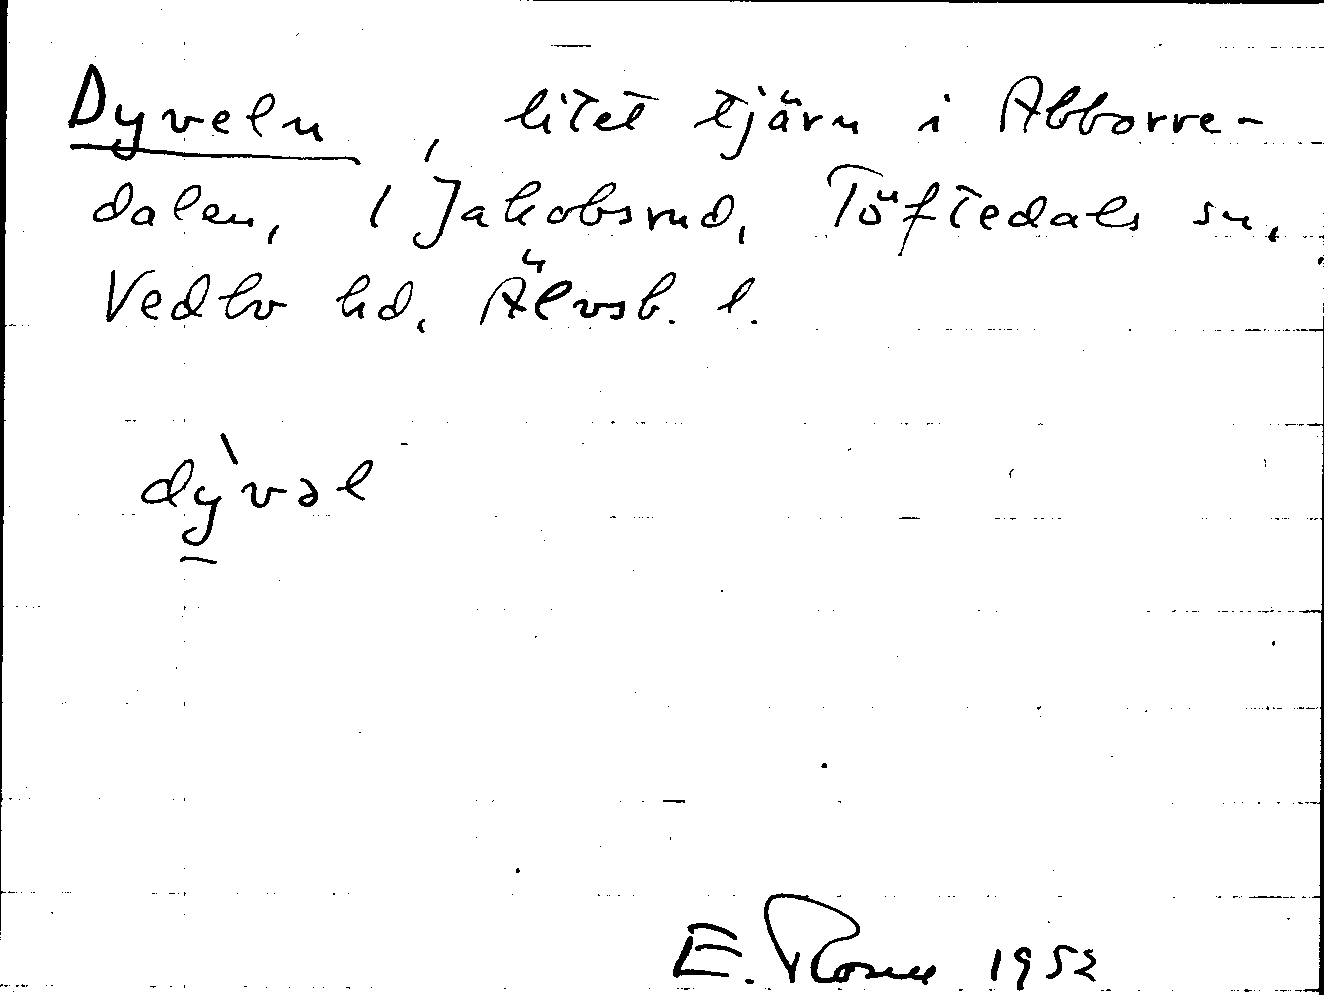 Dyveln, litet tjärn i Abborre-
dalen, 1 Jakobsrud, Töftedals sn,
Vedbo hd, Älvsb. l.
dỳvəl
E. 1952